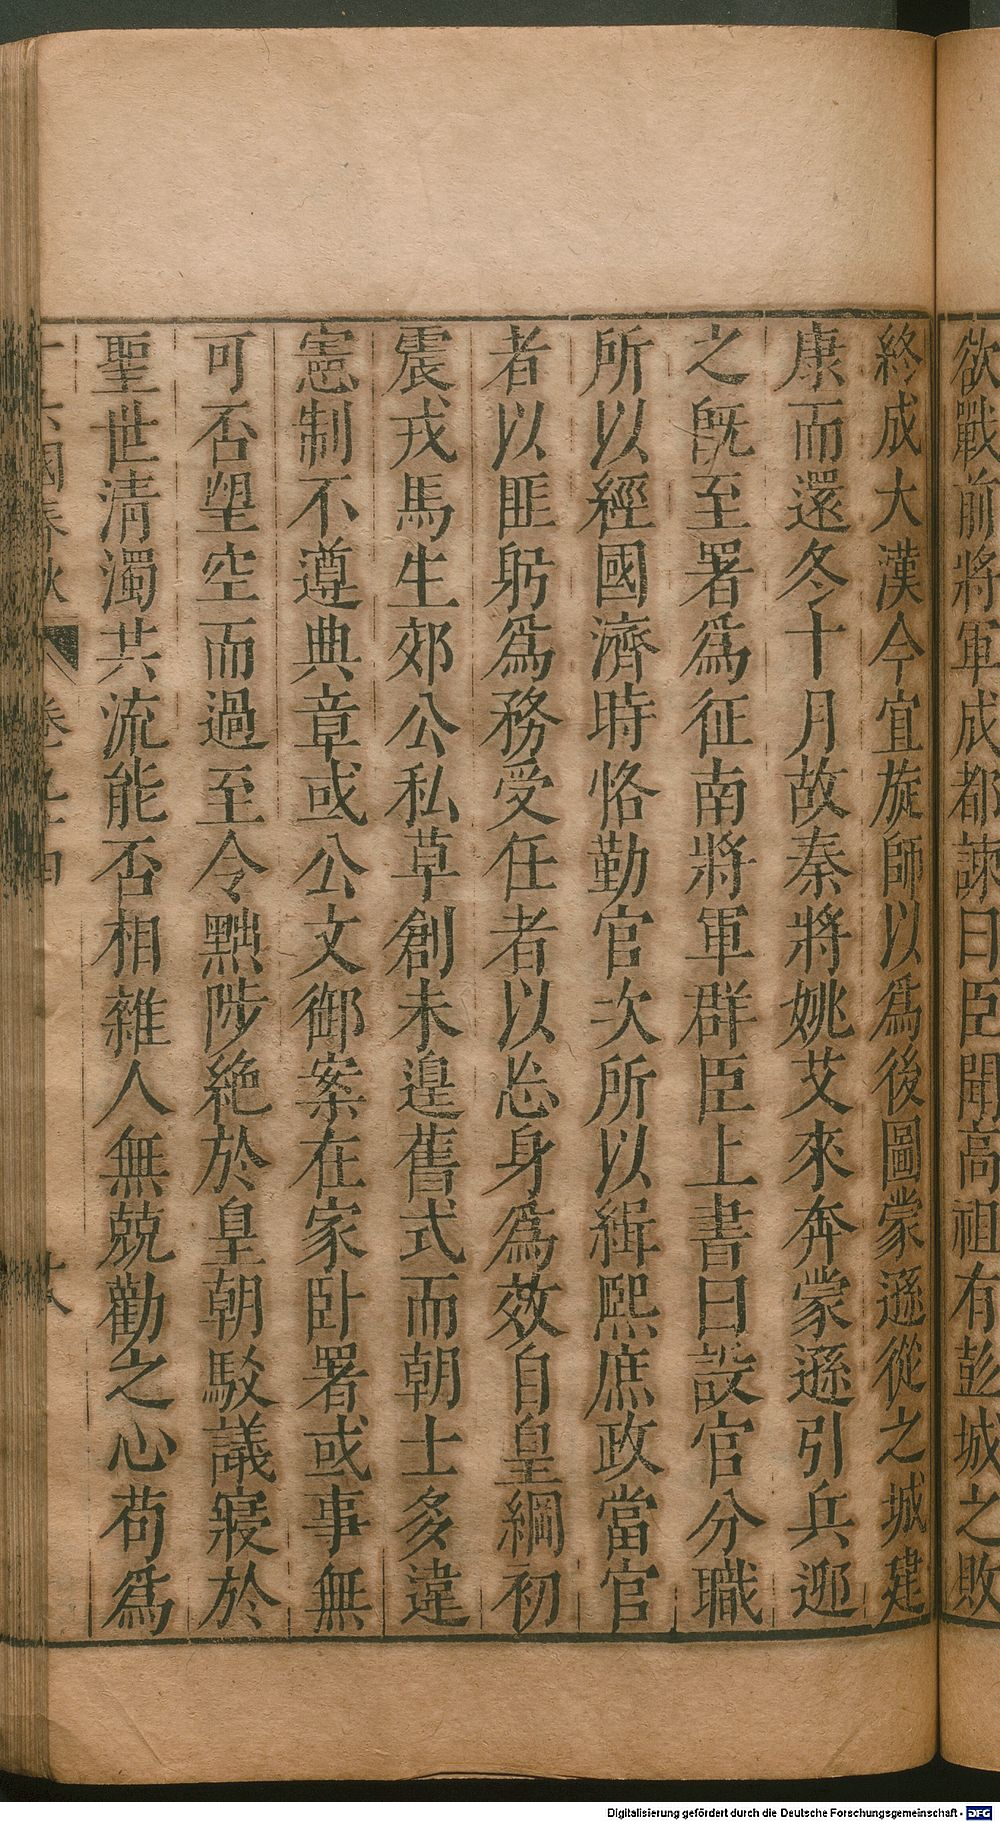 欲戰前將軍成都諫曰臣聞高祖有彭城之敗
終成大漢今宜旋師以爲後圖蒙遜從之城建
康而還冬十月故秦將姚艾來奔蒙遜引兵迎
之旣至署爲征南將軍群臣上書曰設官分職
所以經國濟時恪勤官次所以緝熙庶政當官
者以匪躬爲務受任者以忘身爲效自皇綱初
震戎馬生郊公私草創未遑舊式而朝士多違
憲制不遵典章或公文御案在家卧署或事無
可否望空而過至令黜陟絶於皇朝駁議寢於
聖世清濁共流能否相雜人無兢勸之心苟爲
十六國春秋 卷
Digitalisierung gefördert durch die Deutsche Forschungsgemeinschaft - DFG